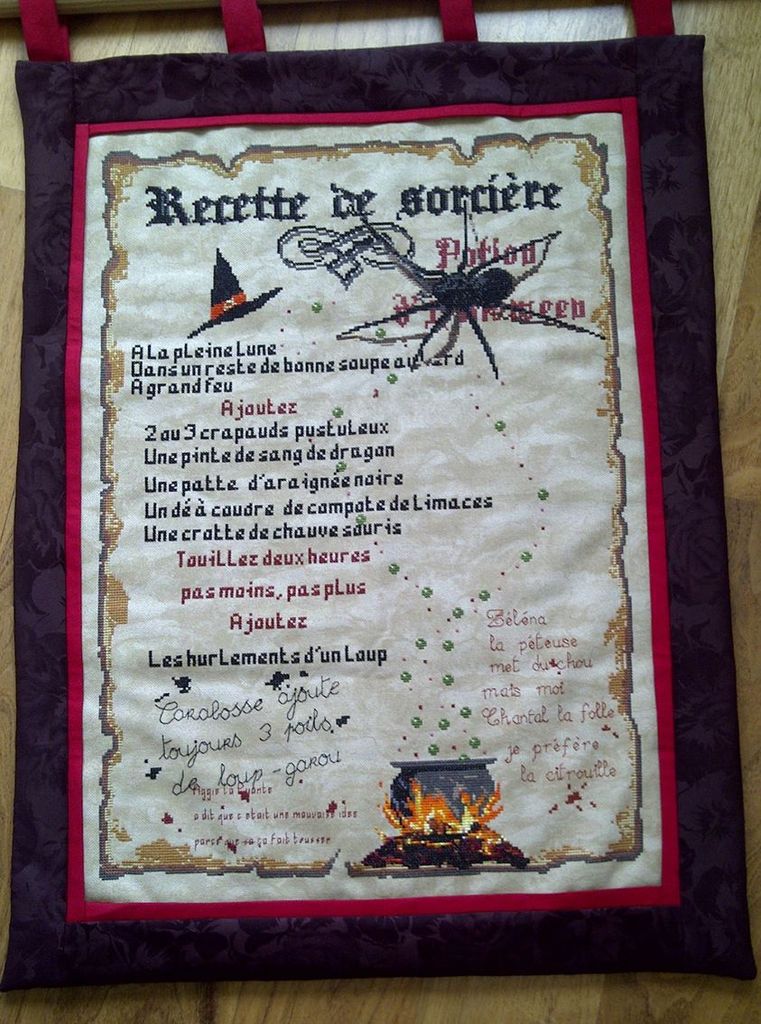 Recette de sorcière
Potion
A la pleine Lune
Dans un reste de bonne soupe au
A grand feu
Ajoutez
2 ou 3 crapauds pustuleux
Une pinte de sang de dragon
Une patte d'araignée noire
Un dé à coudre de compote de Limaces
Une crotte de chauve souris
Touillez deux heures
pas moins, pas plus
Ajoutez
Les hurlements d'un Loup
Carabosse ajoute
toujours 3 poils
de loup-garou
Aggie la
a dit que c etait une mauvaise idee
parce que sa ça fait tousser
Zéléna
la péteuse
met du chou
mais moi
Chantal la folle
je préfère
la citrouille